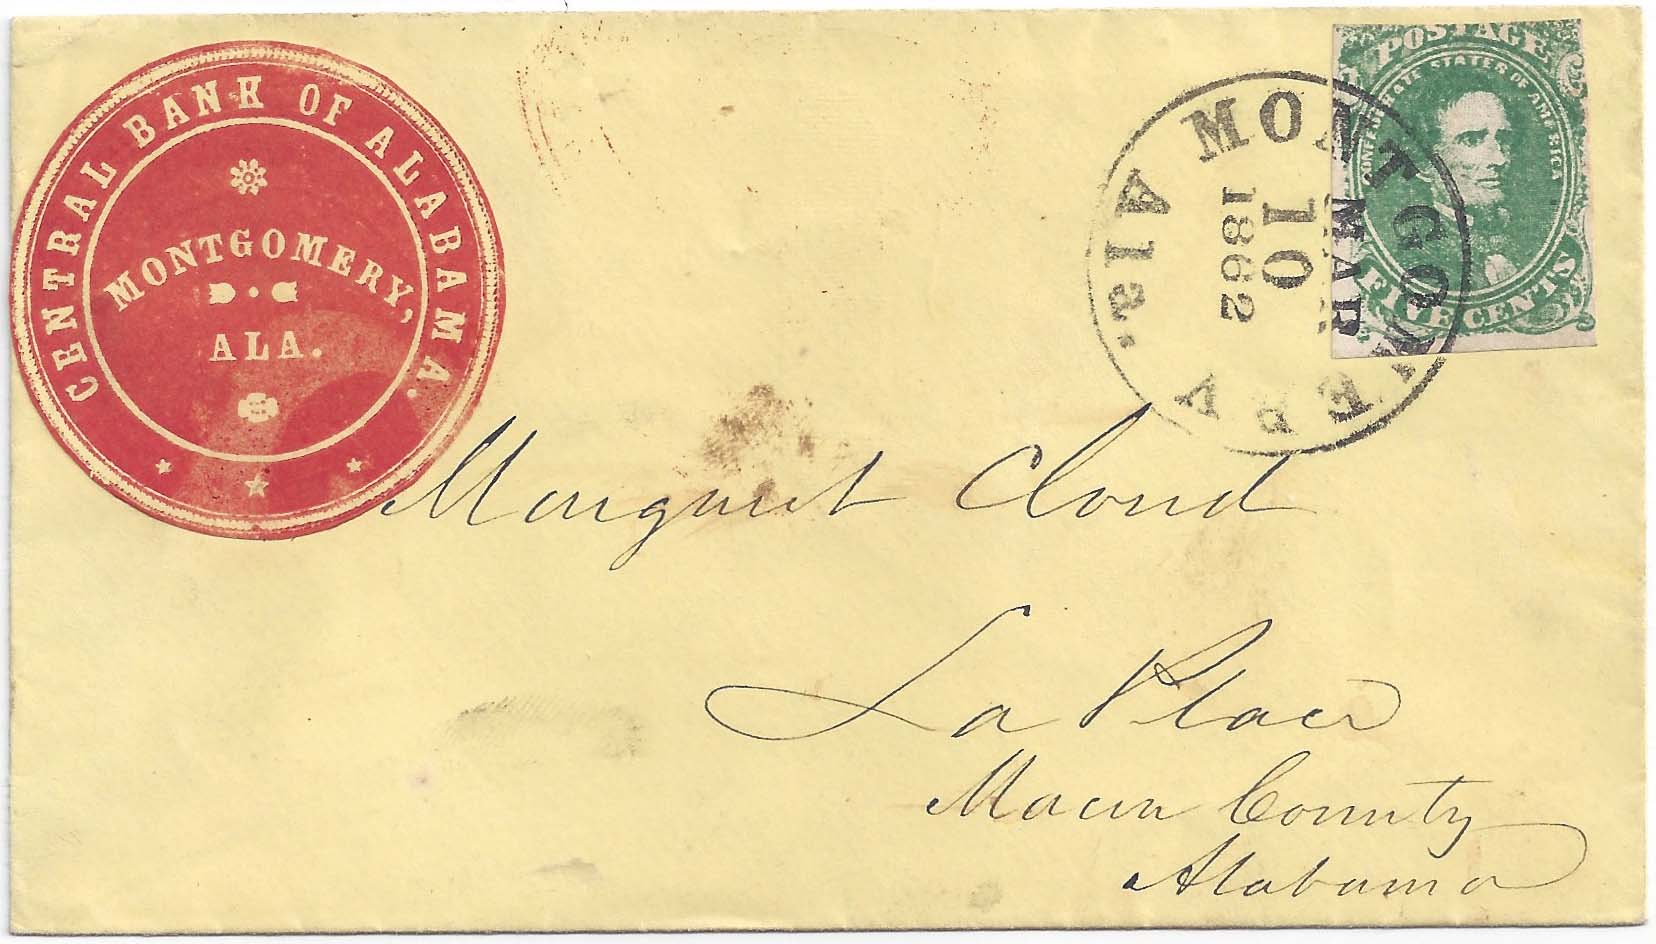 CENTRAL BANK OF ALABAMA.
MONTGOMERY,
ALA.
POSTAGE
CONFEDERATE STATES OF AMERICA
FIVE CENTS
MONTGOMERY
Ala.
MAR
10
1862
Margaret Cloud
La Place
Macon County
Alabama